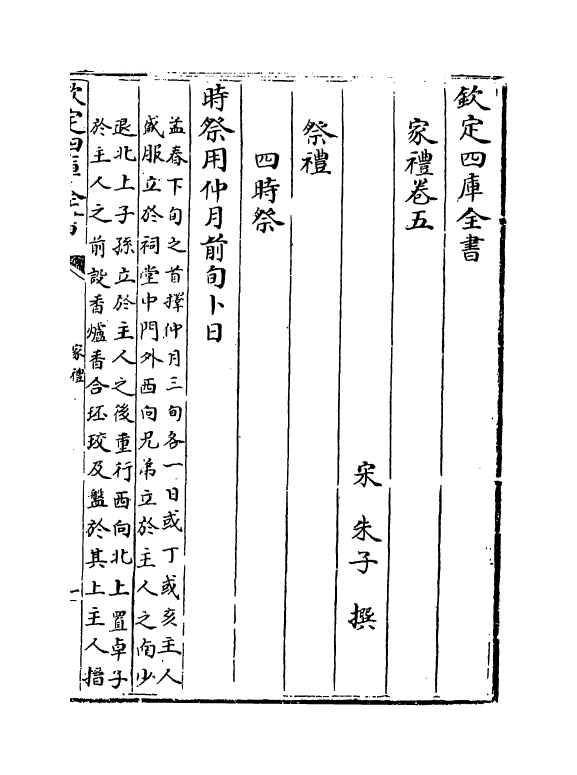 欽定四庫全書
家禮卷五
宋 朱子 撰
祭禮
四時祭
時祭用仲月前旬卜日
孟春下旬之首擇仲月三旬各一日或丁或亥主人
盛服立於祠堂中門外西向兄弟立於主人之南少
退北上子孫立於主人之後重行西向北上置卓子
於主人之前設香爐香合环珓及盤於其上主人搢
欽定四庫全書
家禮
一